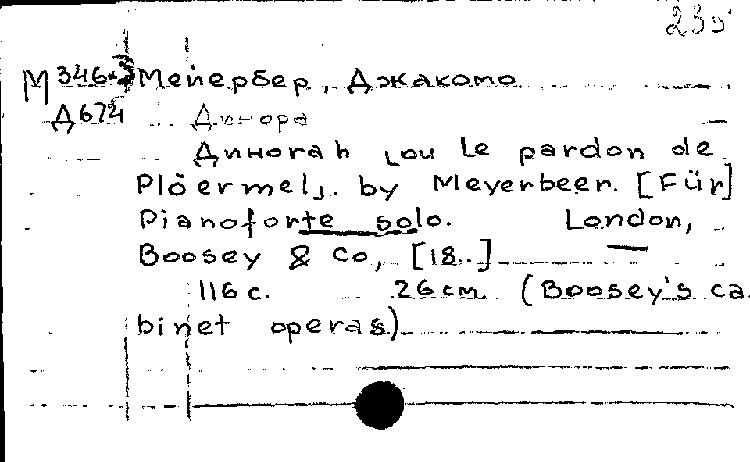 235
М 346-3 Мейербер, Джакомо
Д674 Динора
Диноrah [ou Le pardon de
Plöermel]. by Meyerbeer. [Für]
Pianoforte solo. London,
Boosey & Co, [18..]
116 с. 26 см (Boosey's ca
binet operas)